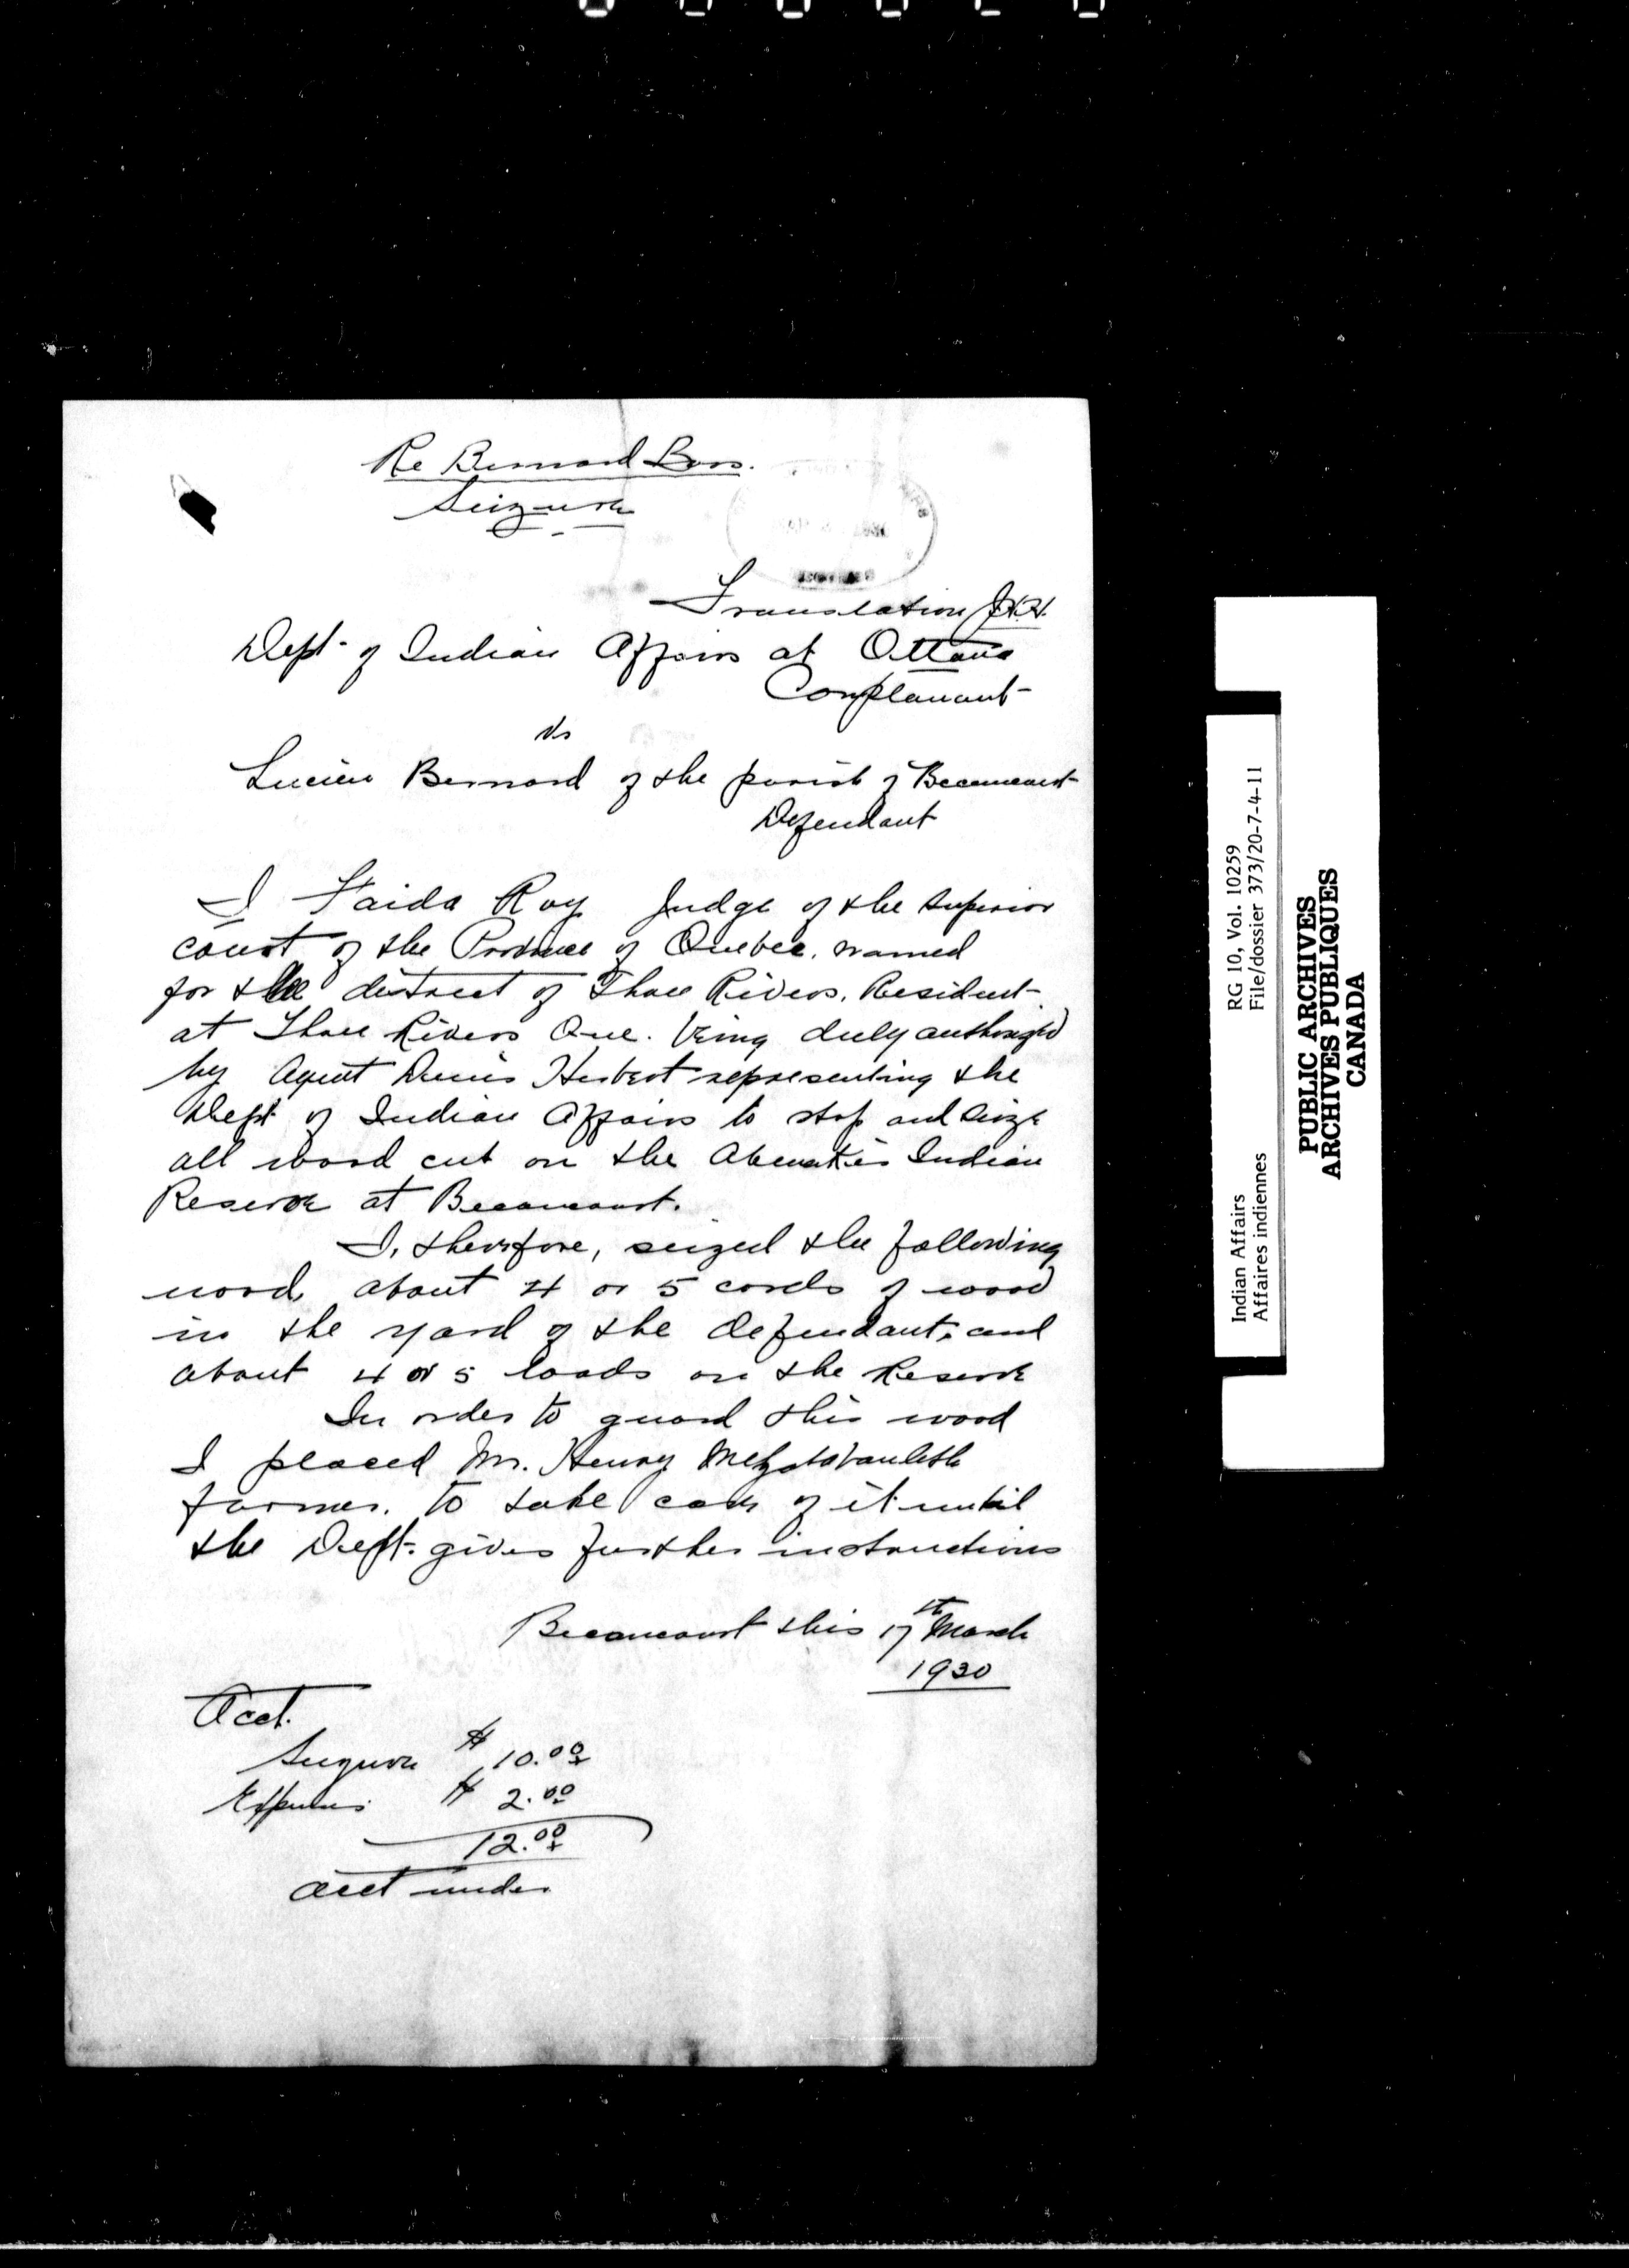 Re Bernard Bros.
Seizure
Translation
Dept. of Indian Affairs at Ottawa
Complanant
Vs
Lucien Bernard of the parish of Becancourt
Defendant
I Faida Roy Judge of the Superior
court of the Province of Quebec, named
for the district of Three Rivers, Resident
at Three Rivers Que. being duly authorized
by Agent Denis Hebert representing the
Dept of Indian Affairs to stop and seize
all wood cut on the Abenakis Indian
Reserve at Becancourt.
I, therefore, seized the following
wood, about 4 or 5 cords of wood
in the yard of the defendant, and
about 4 or 5 loads on the Reserve
In order to guard this wood
I placed Mr. Henry
farmer, to take care of it until
the Dept. gives further instructions
Becancourt this 17th March
1930
Acct.
Seizure $ 10.00
Expenses $ 2.00
12.00
acct under
Indian Affairs RG 10, Vol. 10259
Affaires indiennes File/dossier 373/20-7-4-11
PUBLIC ARCHIVES
ARCHIVES PUBLIQUES
CANADA